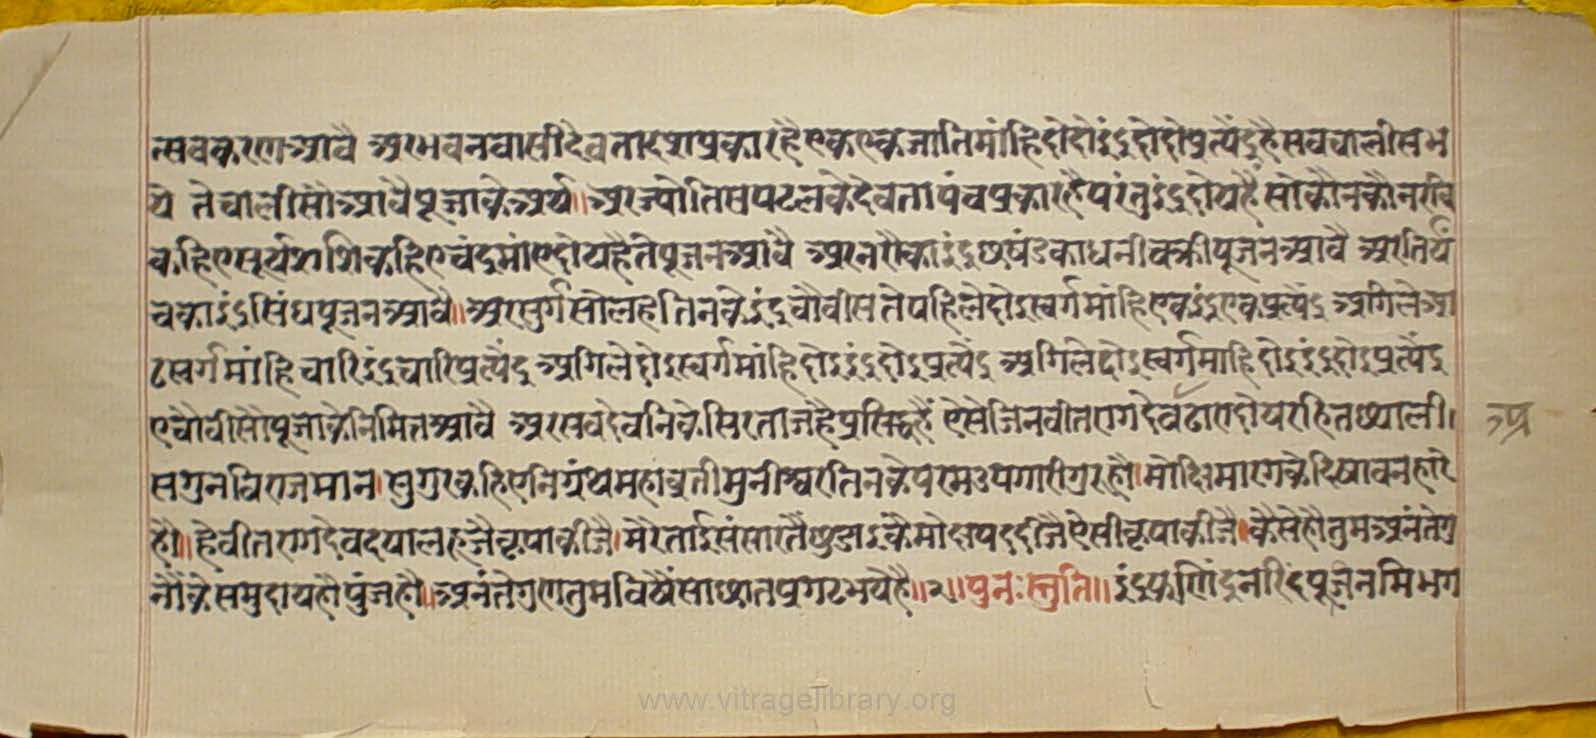 त्सवकरणआवै अरभवनवासीदेवतादशप्रकारहैएकएकजातिमांहिदोदोइंद्रदोदोप्रत्येंद्रहैसवचालीसभ
ये तेचालीसौआवैपूजाकेअर्थ॥अरज्योतिसपटलकेदेवतापंचप्रकारहैपरंतुइंद्रदोयहैं सोकौनकौनरवि
कहिएसूर्यशशिकहिएचंद्रमांएदोयहैतेपूजनआवै अरनरौकाइंद्रछषंडकाधनीचक्रीपूजनआवै अरतिर्यं
चकाइंद्रसिंघपूजनआवै॥अरसुर्गसोलहतिनकेइंद्रचौवीसतेपहिलेदोइस्वर्गमांहिएकइंद्रएकप्रत्येंद्र अगिलेआ
ठस्वर्गमांहिचारिइंद्रचारिप्रत्येंद्र अगिलेदोइस्वर्गमांहिदोइइंद्रदोइप्रत्येंद्र अगिलेदोइस्वर्गमाहिदोइइंद्रदोइप्रत्येंद्र
एचौवीसौपूजाकेनिमित्तआवै अरसवदेवनिकेसिरताजहैप्रसिद्धहैं ऐसेजिनवीतरागदेवठारादोयरहितछ्याली।
सगुनविराजमान।सुगुरकहिएनिग्रंथमहाव्रतीमुनीश्वरतिनकेपरमउपगारीगुरहौ।मोक्षिमारगकेदिषावनहारे
हौ॥हेवीतरागदेवदयालहूजैकृपाकीजै।मेरेतांईसंसारतैंछुडाइकैमोक्षपददीजैऐसीकृपाकीजै।कैसेहौतुमअनंतेगु
नौंकेसमुदायहौपुंजहौ॥अनंतेगुणतुमविषैंसाछातप्रगटभयेहै॥२॥पुनःस्तुति॥इंद्रफणिंदनरिंदपूजनमिभग